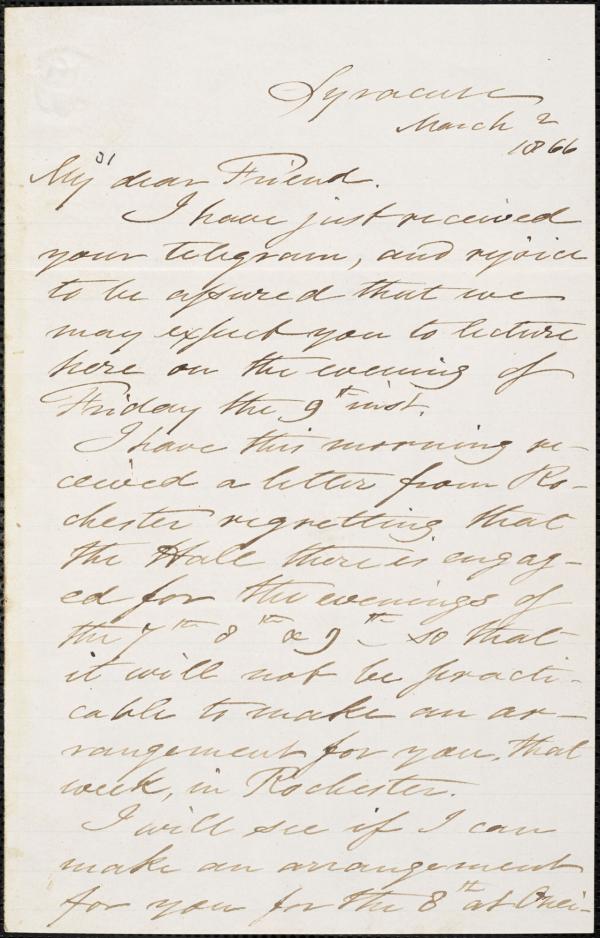 Syracuse
March 2
1866
My dear Friend.
I have just received
your telegram, and rejoice
to be assured that we
may expect you to lecture
here on the evening of
Friday the 9th inst.
I have this morning re-
ceived a letter from Ro-
chester regretting that
the Hall there is engag-
ed for the evenings of
the 7th 8th & 9th so that
it will not be practi-
cable to make an ar-
rangement for you, that
week, in Rochester.
I will see if I can
make an arrangement
for you for the 8th at